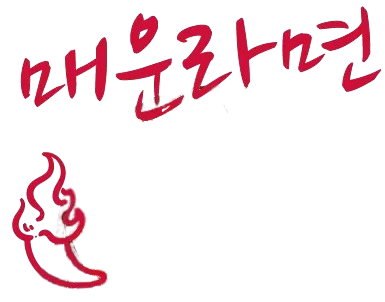 매운라면